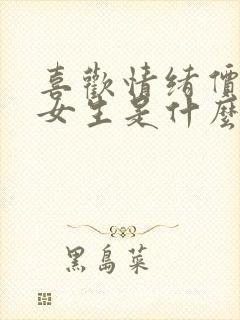 喜歡情緒價
女生是什麼
黑島菜